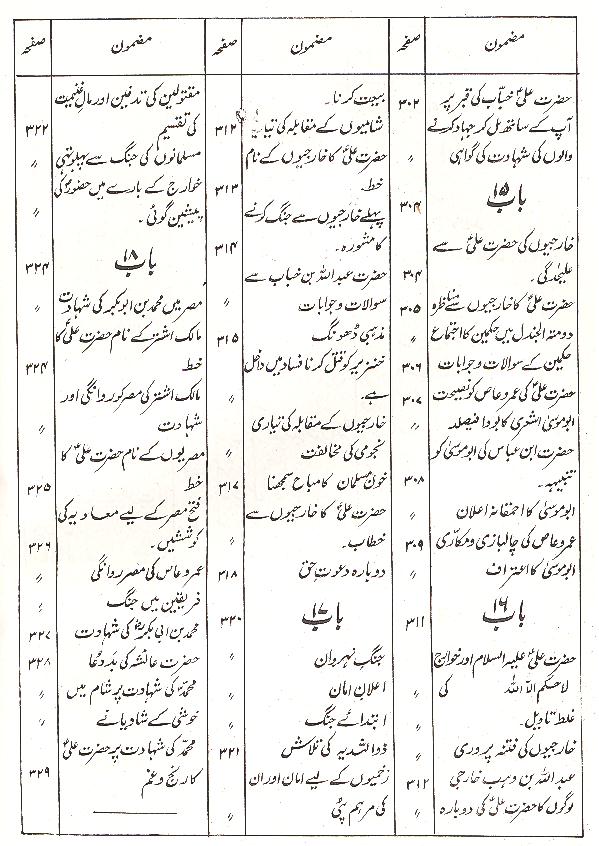 مضمون
صفحہ
حضرت علیؑ خبابؓ کی قبر پر
۳۰۲
آپ کے ساتھ مل کر جہاد کرنے
والوں کی شہادت کی گواہی
〃
باب ۱۵
۳۰۴
خارجیوں کی حضرت علیؑ سے
علیحدگی۔
۳۰۴
حضرت علیؑ کا خارجیوں سے مناظرہ
۳۰۵
دومۃ الجندل میں حکمین کا اجتماع
〃
حکمین کے سوالات و جوابات
۳۰۶
حضرت علیؑ کی عمرو عاص کو نصیحت
۳۰۷
ابوموسیٰ اشعری کا بودا فیصلہ
〃
حضرت ابن عباس کی ابوموسیٰ کو
تنبیہہ۔
۳۰۸
ابوموسیٰ کا احمقانہ اعلان
〃
عمرو عاص کی چالبازی و مکاری
۳۰۹
ابوموسیٰ کا اعتراف
〃
باب ۱۶
۳۱۱
حضرت علیؑ علیہ السلام اور خوارج
〃
لاحکم الّا اللہ کی
غلط تاویل۔
خارجیوں کی فتنہ پروری
〃
عبداللہ بن وہب خارجی
۳۱۲
لوگوں کا حضرت علیؑ کی دوبارہ
〃
مضمون
صفحہ
بیعت کرنا۔
شامیوں کے مقابلہ کی تیاری
۳۱۲
حضرت علیؑ کا خارجیوں کے نام
خط
۳۱۳
پہلے خارجیوں سے جنگ کرنے
کا مشورہ۔
۳۱۴
حضرت عبداللہ بن خباب سے
سوالات و جوابات
〃
مذہبی ڈھونگ
۳۱۵
خنزیر کو قتل کرنا فساد میں داخل
ہے۔
〃
خارجیوں کے مقابلہ کی تیاری
نجومی کی مخالفت
〃
خون مسلمان کا مباح سمجھنا
۳۱۷
حضرت علیؑ کا خارجیوں سے
خطاب۔
〃
دوبارہ دعوتِ حق
۳۱۸
باب ۱۷
۳۲۰
جنگ نہروان
〃
اعلانِ امان
〃
ابتدائے جنگ
〃
ذوالثدیہ کی تلاش
۳۲۱
زخمیوں کے لیے امان اور ان
کی مرہم پٹی
〃
مضمون
صفحہ
مقتولین کی تدفین اور مال غنیمت
کی تقسیم
۳۲۲
مسلمانوں کی جنگ سے پہلو تہی
〃
خوارج کے بارے میں حضورؐ کی
پیشین گوئی۔
〃
باب ۱۸
۳۲۴
مصر میں محمد بن ابوبکر کی شہادت
〃
مالک اشتر کے نام حضرت علیؑ کا
خط
۳۲۴
مالک اشتر کی مصر کو روانگی اور
شہادت
〃
مصریوں کے نام حضرت علیؑ کا
خط
۳۲۵
فتح مصر کے لیے معاویہ کی
کوششیں۔
۳۲۶
عمرو عاص کی مصر روانگی
〃
فریقین میں جنگ
〃
محمد بن ابی بکرؓ کی شہادت
۳۲۷
حضرت عائشہ کی بددعا
۳۲۸
محمدؓ کی شہادت پر شام میں
〃
خوشی کے شادیانے
〃
محمدؓ کی شہادت پر حضرت علیؑ
کا رنج و غم
۳۲۹